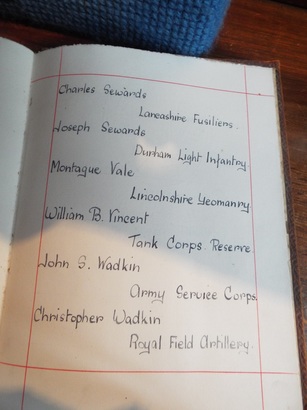 Charles Sewards
Lancashire Fusiliers.
Joseph Sewards
Durham Light Infantry.
Montague Vale
Lincolnshire Yeomanry
William B. Vincent
Tank Corps. Reserve.
John S. Wadkin
Army Service Corps.
Christopher Wadkin
Royal Field Artillery.